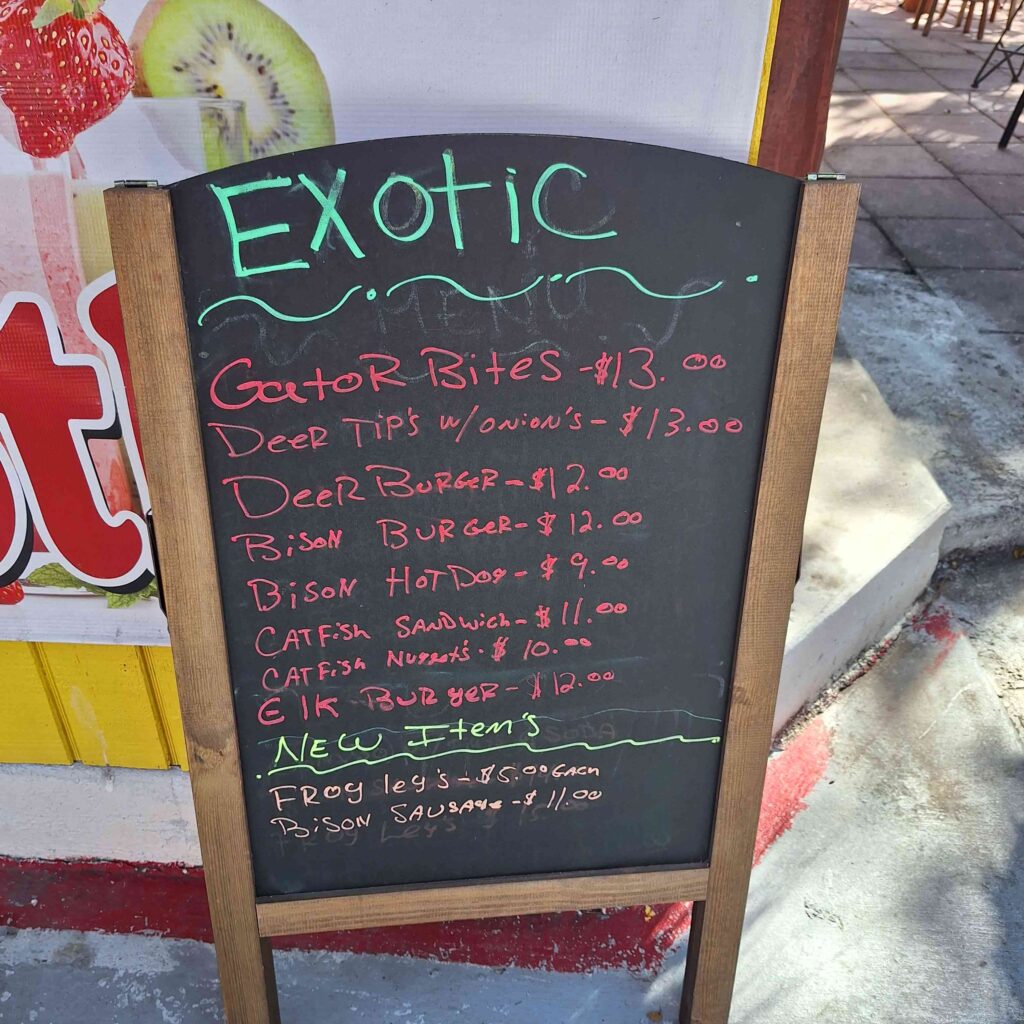 EXOTIC
MENU
GatoR Bites - $13.00
DeeR Tip's w/onion's - $13.00
DeeR BuRgeR - $12.00
BisoN BuRgeR - $12.00
BisoN HotDog - $9.00
CATFish SANDWich - $11.00
CATFish Nugget's - $10.00
Elk BuRgeR - $12.00
New Item's
FRog leg's - $5.00 each
BisoN SAUSAge - $11.00